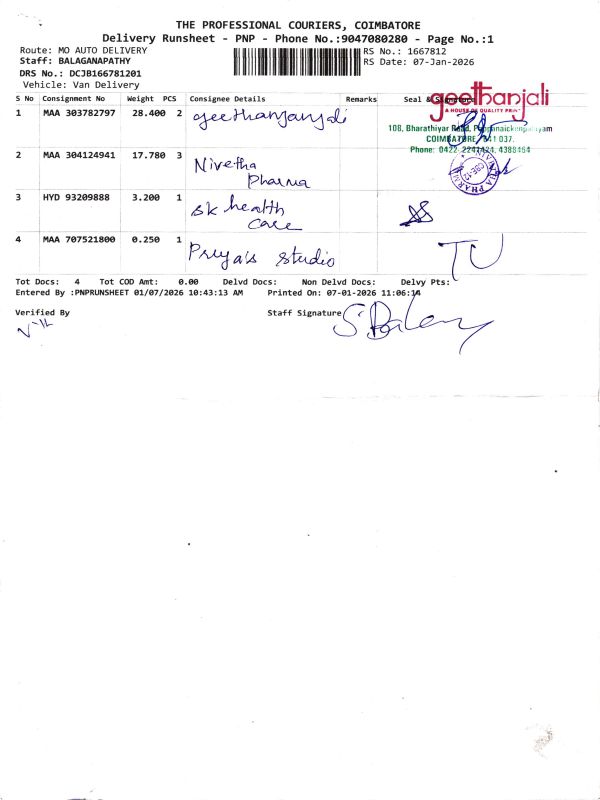 THE PROFESSIONAL COURIERS, COIMBATORE
Delivery Runsheet - PNP - Phone No.:9047080280 - Page No.:1
Route: MO AUTO DELIVERY
RS No.: 1667812
Staff: BALAGANAPATHY
RS Date: 07-Jan-2026
DRS No.: DCJB166781201
Vehicle: Van Delivery
S No Consignment No Weight PCS Consignee Details Remarks Seal & Signature
1 MAA 303782797 28.400 2 geethanjanjali
geethanjali
A HOUSE OF QUALITY PRINT
108, Bharathiyar Road, Pappanaickenpalayam
COIMBATORE - 641 037.
Phone: 0422-2247424, 4388454
2 MAA 304124941 17.780 3 Nivetha
Pharma
NIVETHA PHARMA
CBE-12
3 HYD 93209888 3.200 1 sk health
care
4 MAA 707521800 0.250 1 Priya's studio
TU
Tot Docs: 4 Tot COD Amt: 0.00 Delvd Docs: Non Delvd Docs: Delvy Pts:
Entered By :PNPRUNSHEET 01/07/2026 10:43:13 AM Printed On: 07-01-2026 11:06:14
Verified By Staff Signature
S. Bala